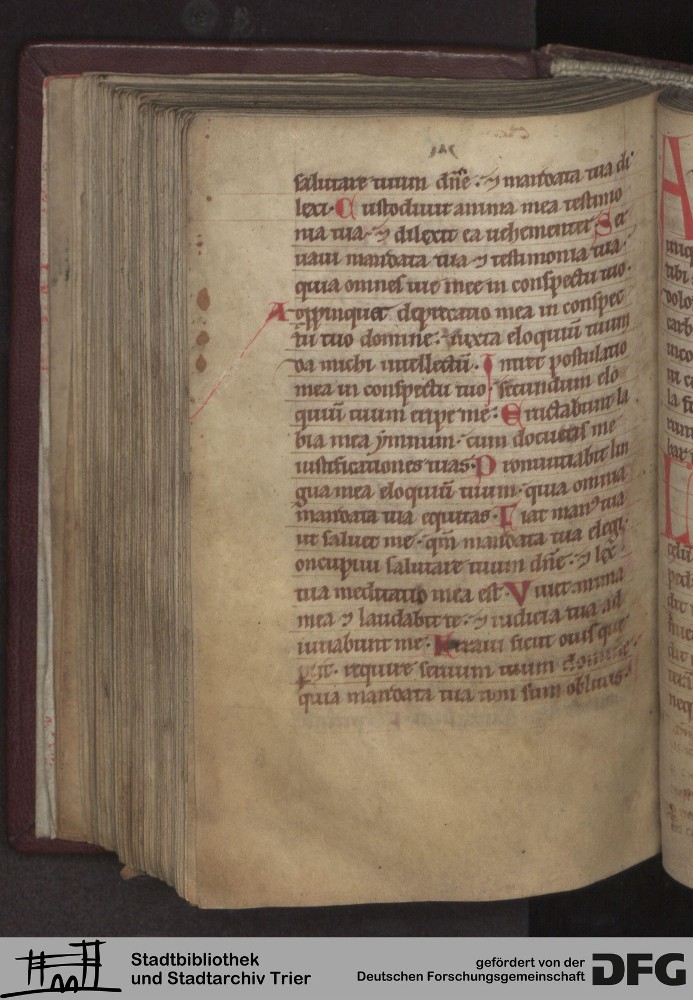 salutare tuum dn̄e · ⁊ mandata tua di
lexi · Custodiuit anima mea testimo
nia tua · ⁊ dilexit ea uehementer Ser
uaui mandata tua ⁊ testimonia tua ·
quia omnes uie mee in conspectu tuo ·
Appinquet deprecatio mea in conspec
tu tuo domine · iuxta eloquiū tuum
da michi intellectū · Intret postulatio
mea in conspectu tuo · secundum elo
quiū tuum eripe me · Eructabunt la
bia mea ymnum · cum docueris me
iustificationes tuas · Pronuntiabit lin
gua mea eloquiū tuum · quia omnia
mandata tua equitas · Fiat man⁹ tua
ut saluet me · qm̄ mandata tua elegi ·
oncupiui salutare tuum dn̄e · ⁊ lex
tua meditatio mea est · Viuet anima
mea ⁊ laudabit te · ⁊ iudicia tua ad
iuuabunt me · Erraui sicut ouis que
periit · require seruum tuum domine
quia mandata tua non sum oblitus ·
Stadtbibliothek
und Stadtarchiv Trier
gefördert von der
Deutschen Forschungsgemeinschaft
DFG